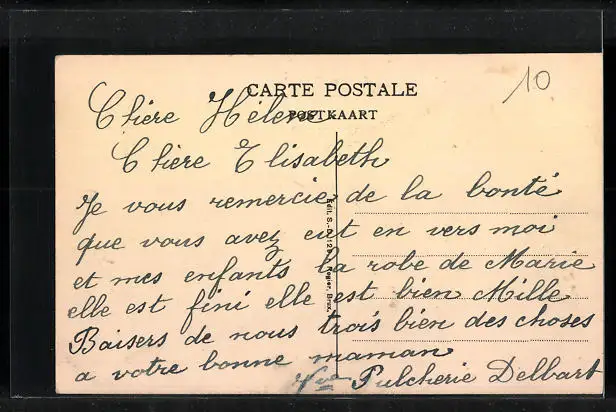 10
CARTE POSTALE
POSTKAART
Chère Hélène
Chère Elisabeth
Je vous remercie de la bonté
que vous avez eut en vers moi
et mes enfants la robe de Marie
elle est fini elle est bien Mille
Baisers de nous trois bien des choses
a votre bonne maman
Vve Pulcherie Delbart